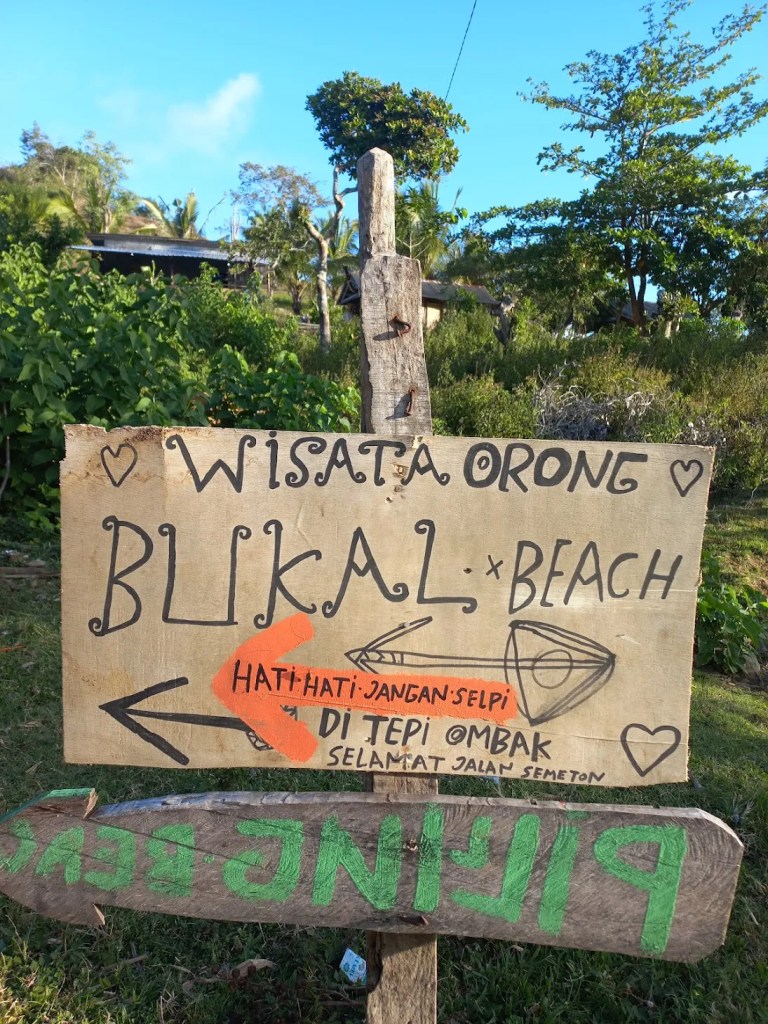 WISATA ORONG
BUKAL x BEACH
HATI·HATI·JANGAN·SELPI
DI TEPI OMBAK
SELAMAT JALAN SEMETON
BEAC